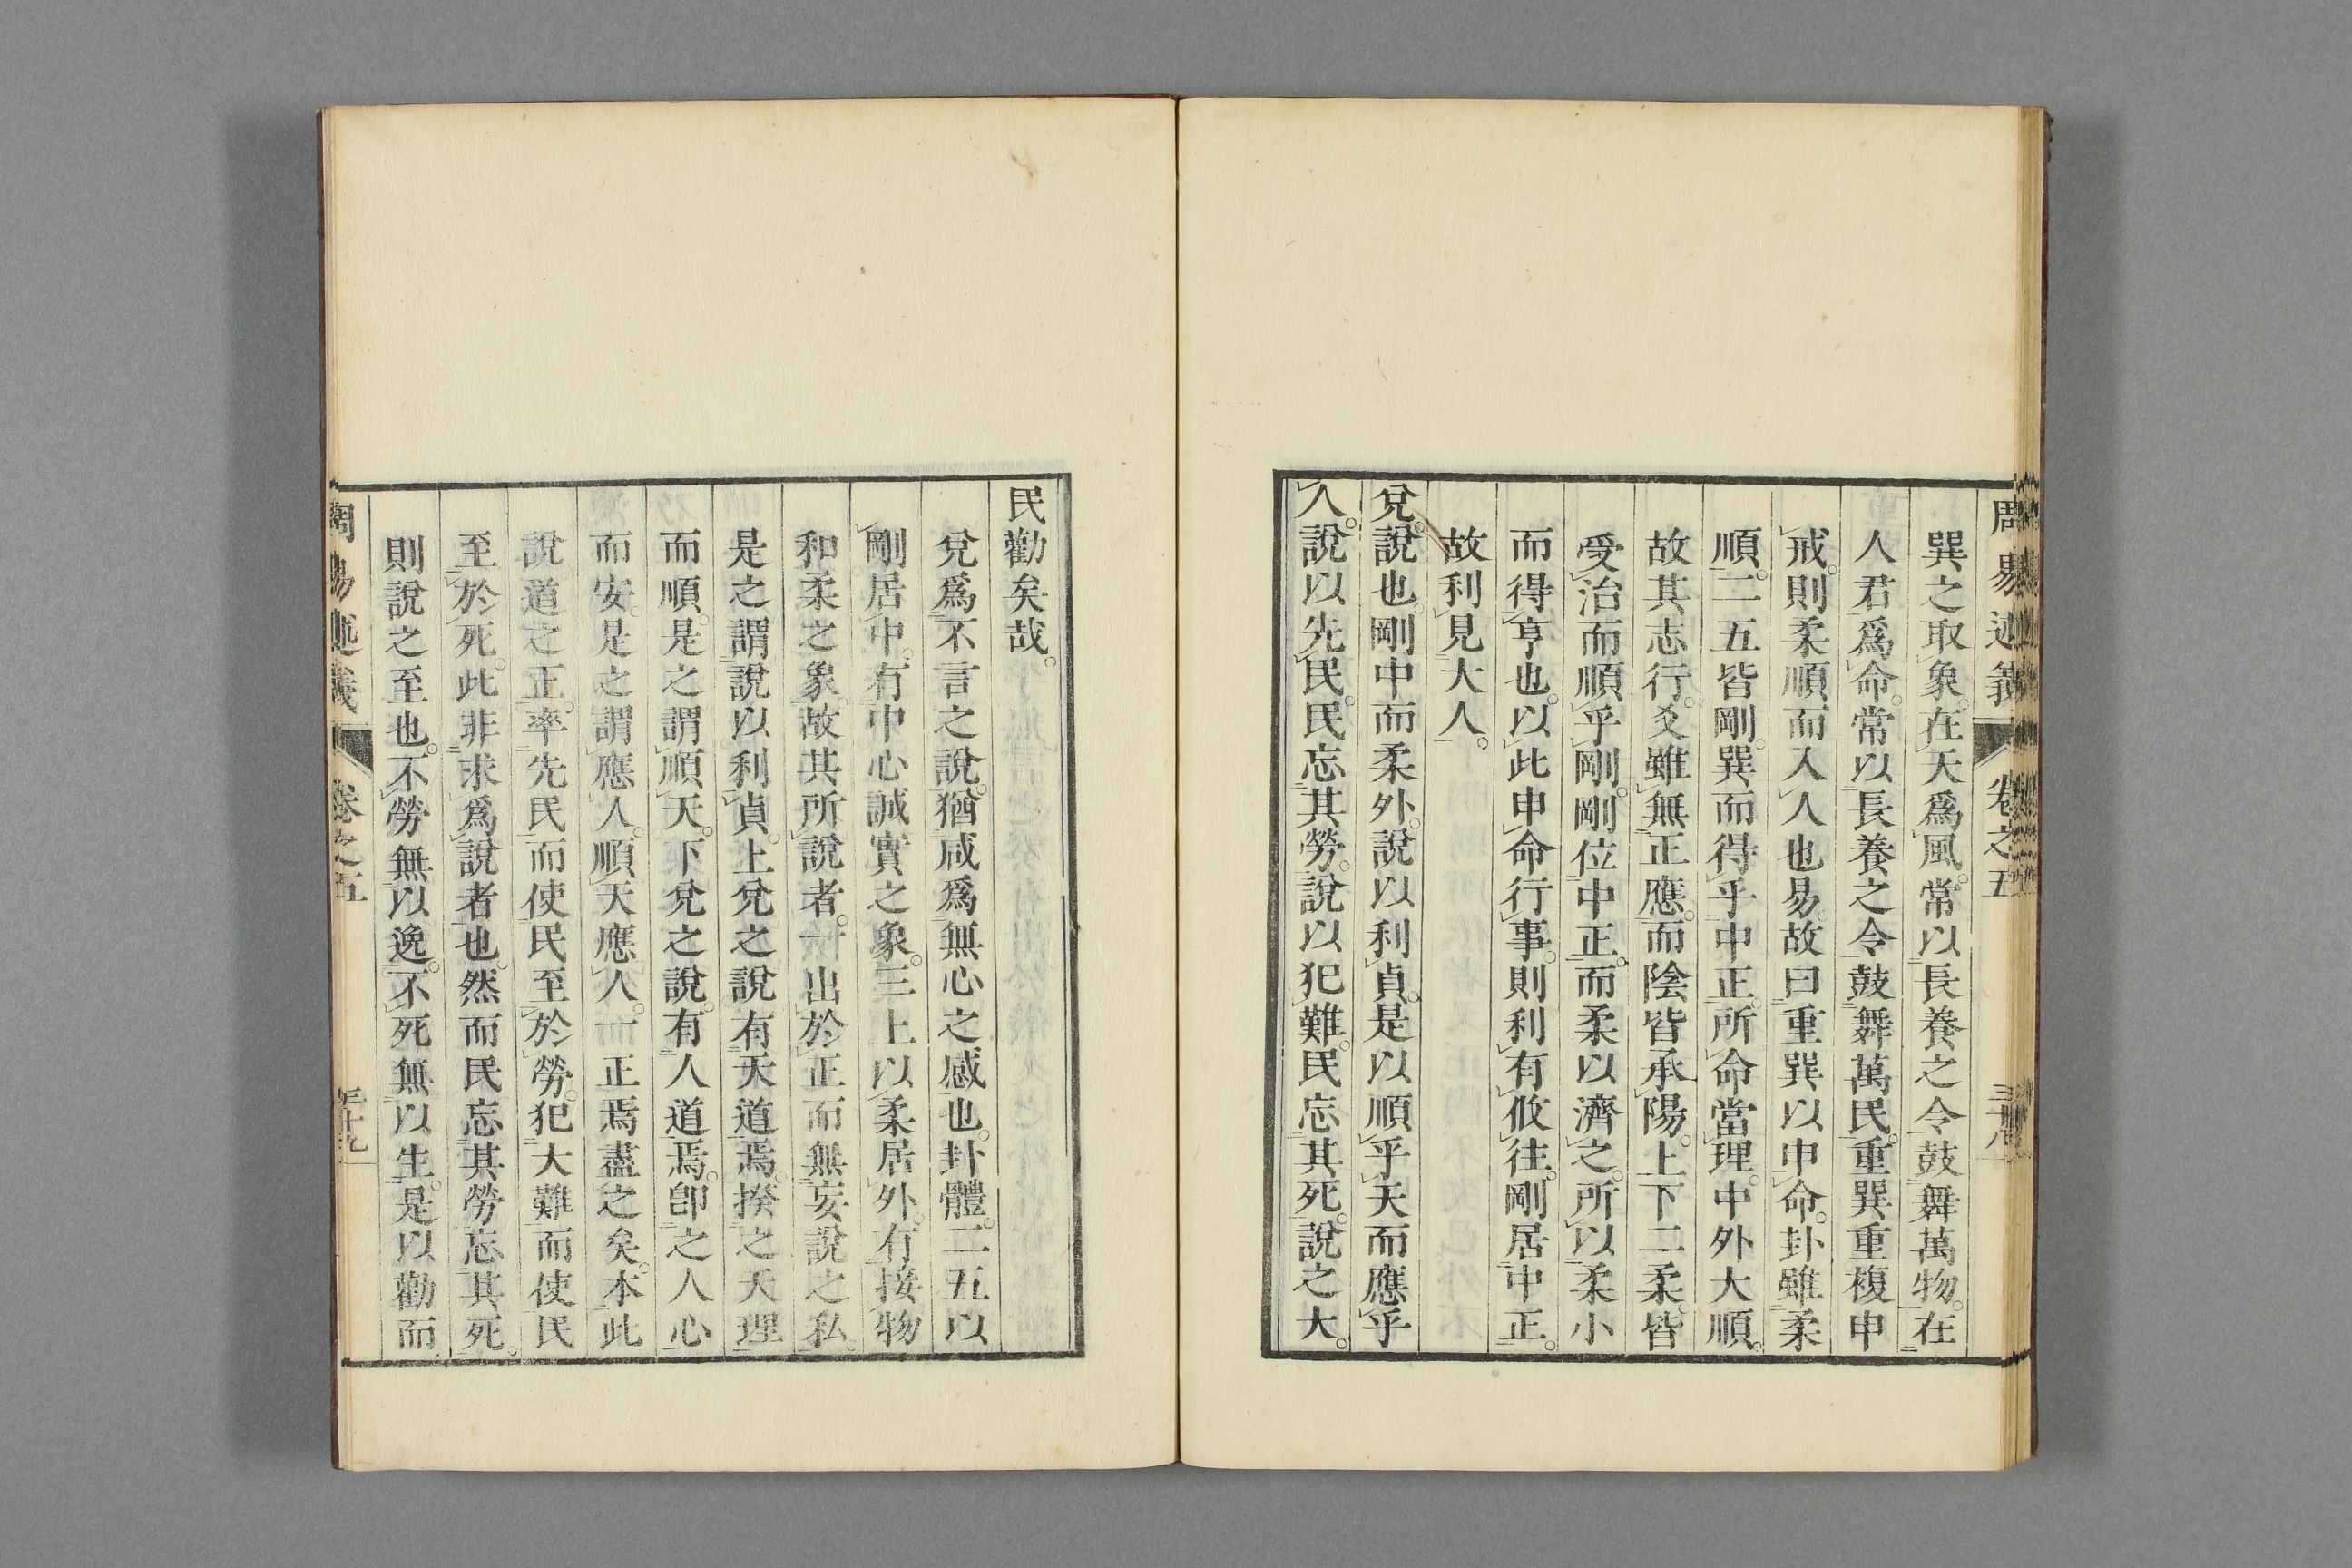 周易述義 卷之五 三十八
巽之取象。在天爲風。常以長養之令鼓舞萬物。在
人君爲命。常以長養之令鼓舞萬民。重巽重複申
戒。則柔順而入人也易。故曰重巽以申命。卦雖柔
順。二五皆剛。巽而得乎中正。所命當理。中外大順。
故其志行。爻雖無正應。而陰皆承陽。上下二柔。皆
受治而順乎剛。剛位中正。而柔以濟之。所以柔小
而得亨也。以此申命行事。則利有攸往。剛居中正。
故利見大人。
兌。說也。剛中而柔外。說以利貞。是以順乎天而應乎
人。說以先民。民忘其勞。說以犯難。民忘其死。說之大。
民勸矣哉。
兌爲不言之說。猶咸爲無心之感也。卦體。二五以
剛居中。有中心誠實之象。三上以柔居外。有接物
和柔之象。故其所說者。一出於正而無妄說之私。
是之謂說以利貞。上兌之說有天道焉。揆之天理
而順。是之謂順天。下兌之說。有人道焉。卽之人心
而安。是之謂應人。順天應人。一正焉盡之矣。本此
說道之正。率先民而使民至於勞。犯大難而使民
至於死。此非求爲說者也。然而民忘其勞忘其死。
則說之至也。不勞無以逸。不死無以生。是以勸而
周易述義 卷之五 三十九